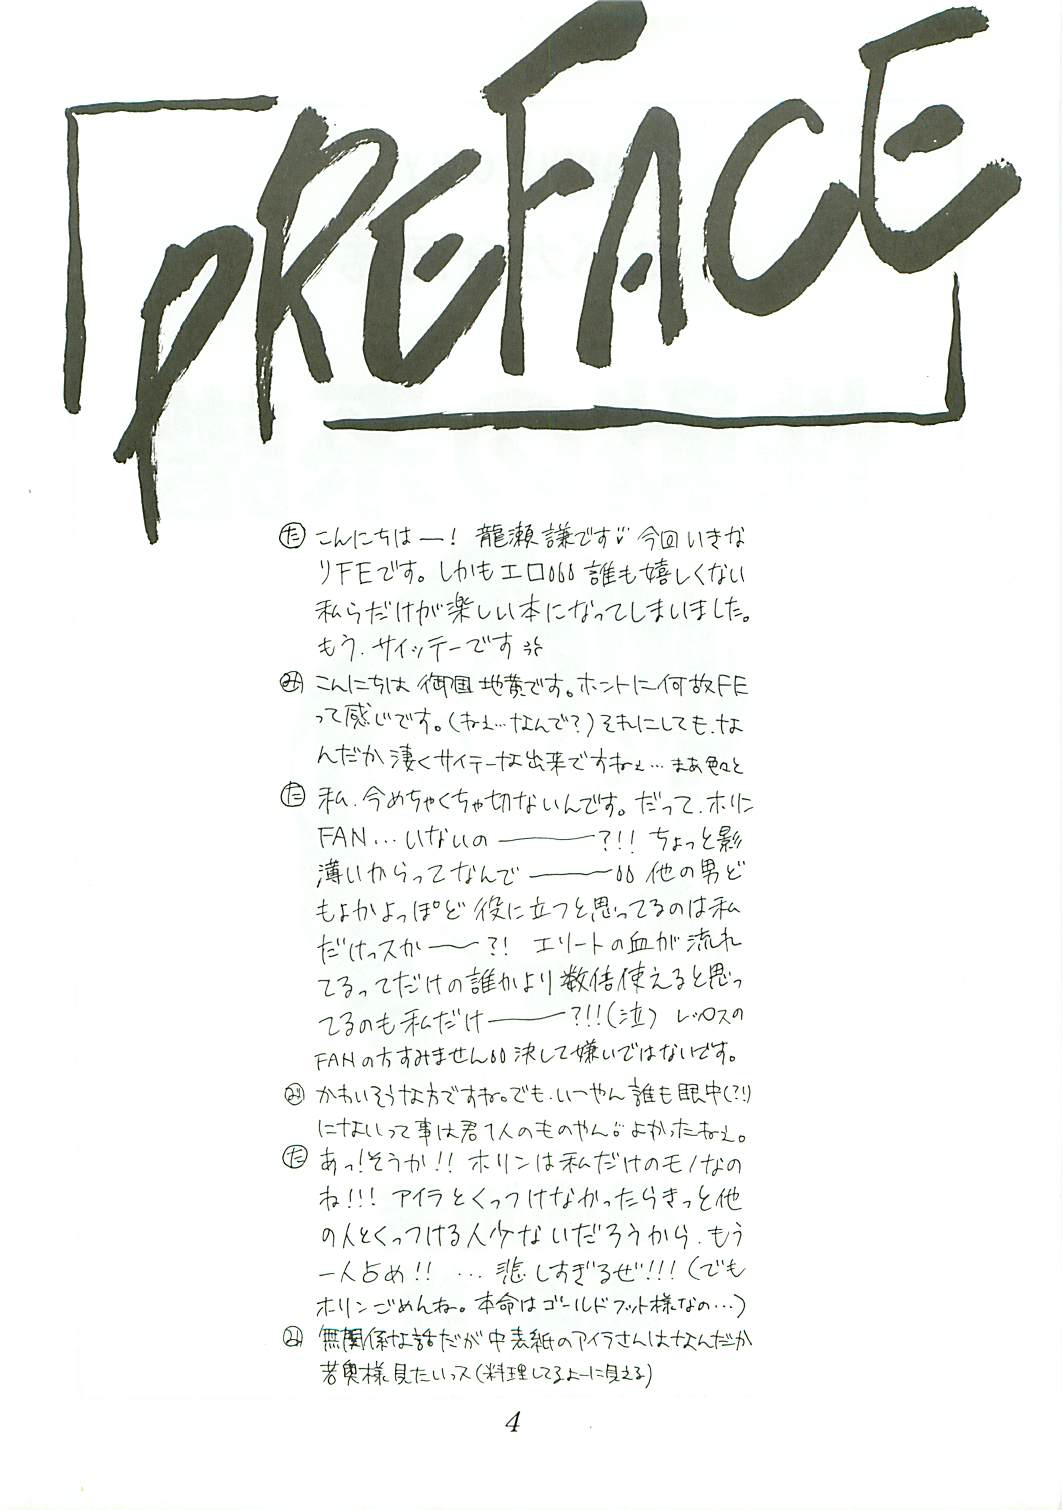 PREFACE
た こんにちはー! 龍瀬謙です♡ 今回いきな
りFEです。しかもエロ。。。誰も嬉しくない
私らだけが楽しい本になってしまいました。
もう、サイッテーです
み こんにちは 御国地黄です。ホントに何故FE
って感じです。(ねぇ…なんで?)それにしても、な
んだか凄くサイテーな出来ですねぇ… まあ色々と
た 私、今めちゃくちゃ切ないんです。だって、ホリン
FAN…いないの―――?!! ちょっと影
薄いからってなんで―――。。他の男ど
もよかよっぽど役に立つと思ってるのは私
だけっスか――?! エリートの血が流れ
てるってだけの誰かより数倍使えると思っ
てるのも私だけ―――?!!(泣) レックスの
FANの方すみません。。決して嫌いではないです。
み かわいそうな方ですね。でも、いーやん誰も眼中(?!)
にないって事は君1人のものやん。よかったねぇ。
た あっ!そうか!! ホリンは私だけのモノなの
ね!!! アイラとくっつけなかったらきっと他
の人とくっつける人少ないだろうから、もう
一人占め!! …悲しすぎるぜ!!!(でも
ホリンごめんね。本命はゴールドフット様なの…)
み 無関係な話だが中表紙のアイラさんはなんだか
若奥様見たいっス(料理してるよーに見える)
4